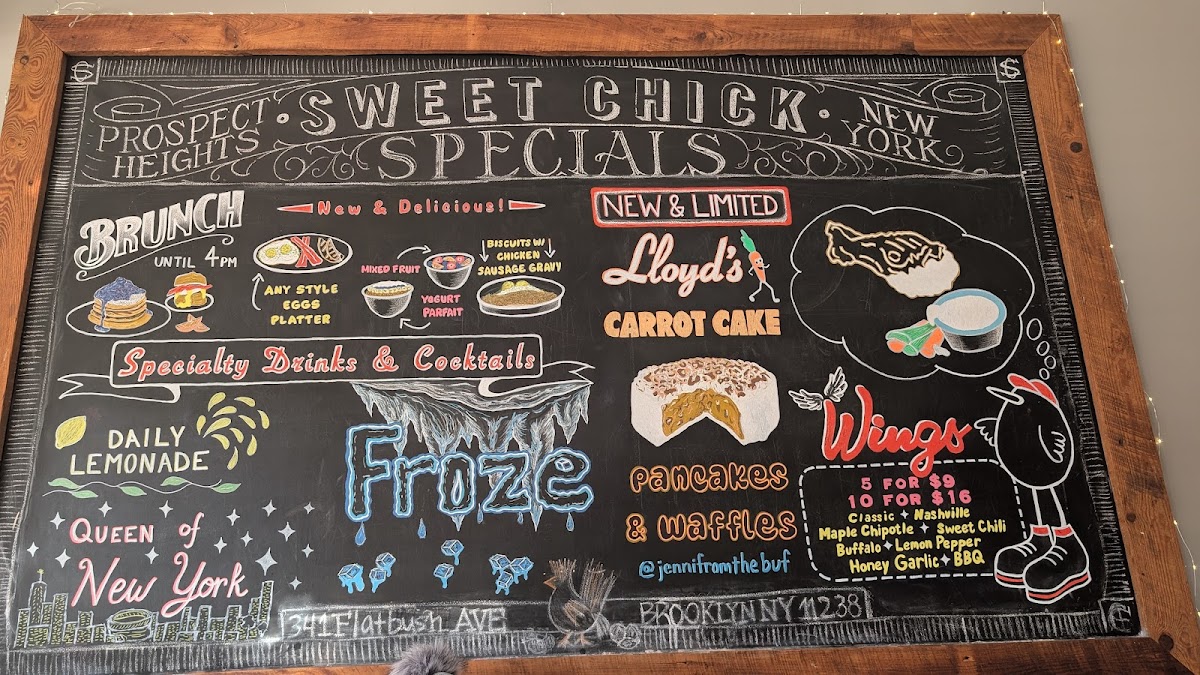 PROSPECT HEIGHTS
· SWEET CHICK ·
NEW YORK
SPECIALS
BRUNCH
UNTIL 4PM
New & Delicious!
ANY STYLE
EGGS
PLATTER
MIXED FRUIT
YOGURT
PARFAIT
BISCUITS W/
CHICKEN
SAUSAGE GRAVY
Specialty Drinks & Cocktails
DAILY
LEMONADE
QUEEN of
New York
Froze
NEW & LIMITED
Lloyd's
CARROT CAKE
PANCAKES
& WAFFLES
@jennifromthebuf
Wings
5 FOR $9
10 FOR $16
Classic ✦ Nashville
Maple Chipotle ✦ Sweet Chili
Buffalo ✦ Lemon Pepper
Honey Garlic ✦ BBQ
341 Flatbush AVE
BROOKLYN NY 11238